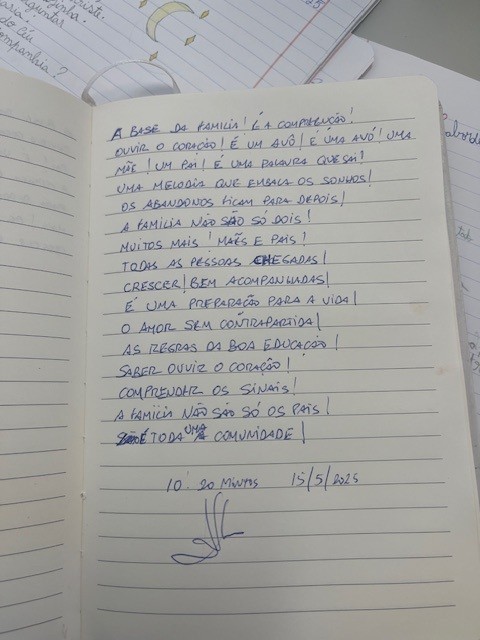 ariste.
ginha.
perguntas
do Céu
companhia?
A BASE DA FAMILIA! É A COMPREENÇÃO!
OUVIR O CORAÇÃO! É UM AVÔ! É UMA AVÓ! UMA
MÃE! UM PAI! É UMA PALAVRA QUE SAI!
UMA MELODIA QUE EMBALA OS SONHOS!
OS ABANDONOS FICAM PARA DEPOIS!
A FAMILIA NÃO SÃO SÓ DOIS!
MUITOS MAIS! MÃES E PAIS!
TODAS AS PESSOAS CHEGADAS!
CRESCER! BEM ACOMPANHADAS!
É UMA PREPARAÇÃO PARA A VIDA!
O AMOR SEM CONTRAPARTIDA!
AS REGRAS DA BOA EDUCAÇÃO!
SABER OUVIR O CORAÇÃO!
COMPRENDER OS SINAIS!
A FAMILIA NÃO SÃO SÓ OS PAIS!
É TODA UMA COMUNIDADE!
10:20 MINUTOS 15/5/2025